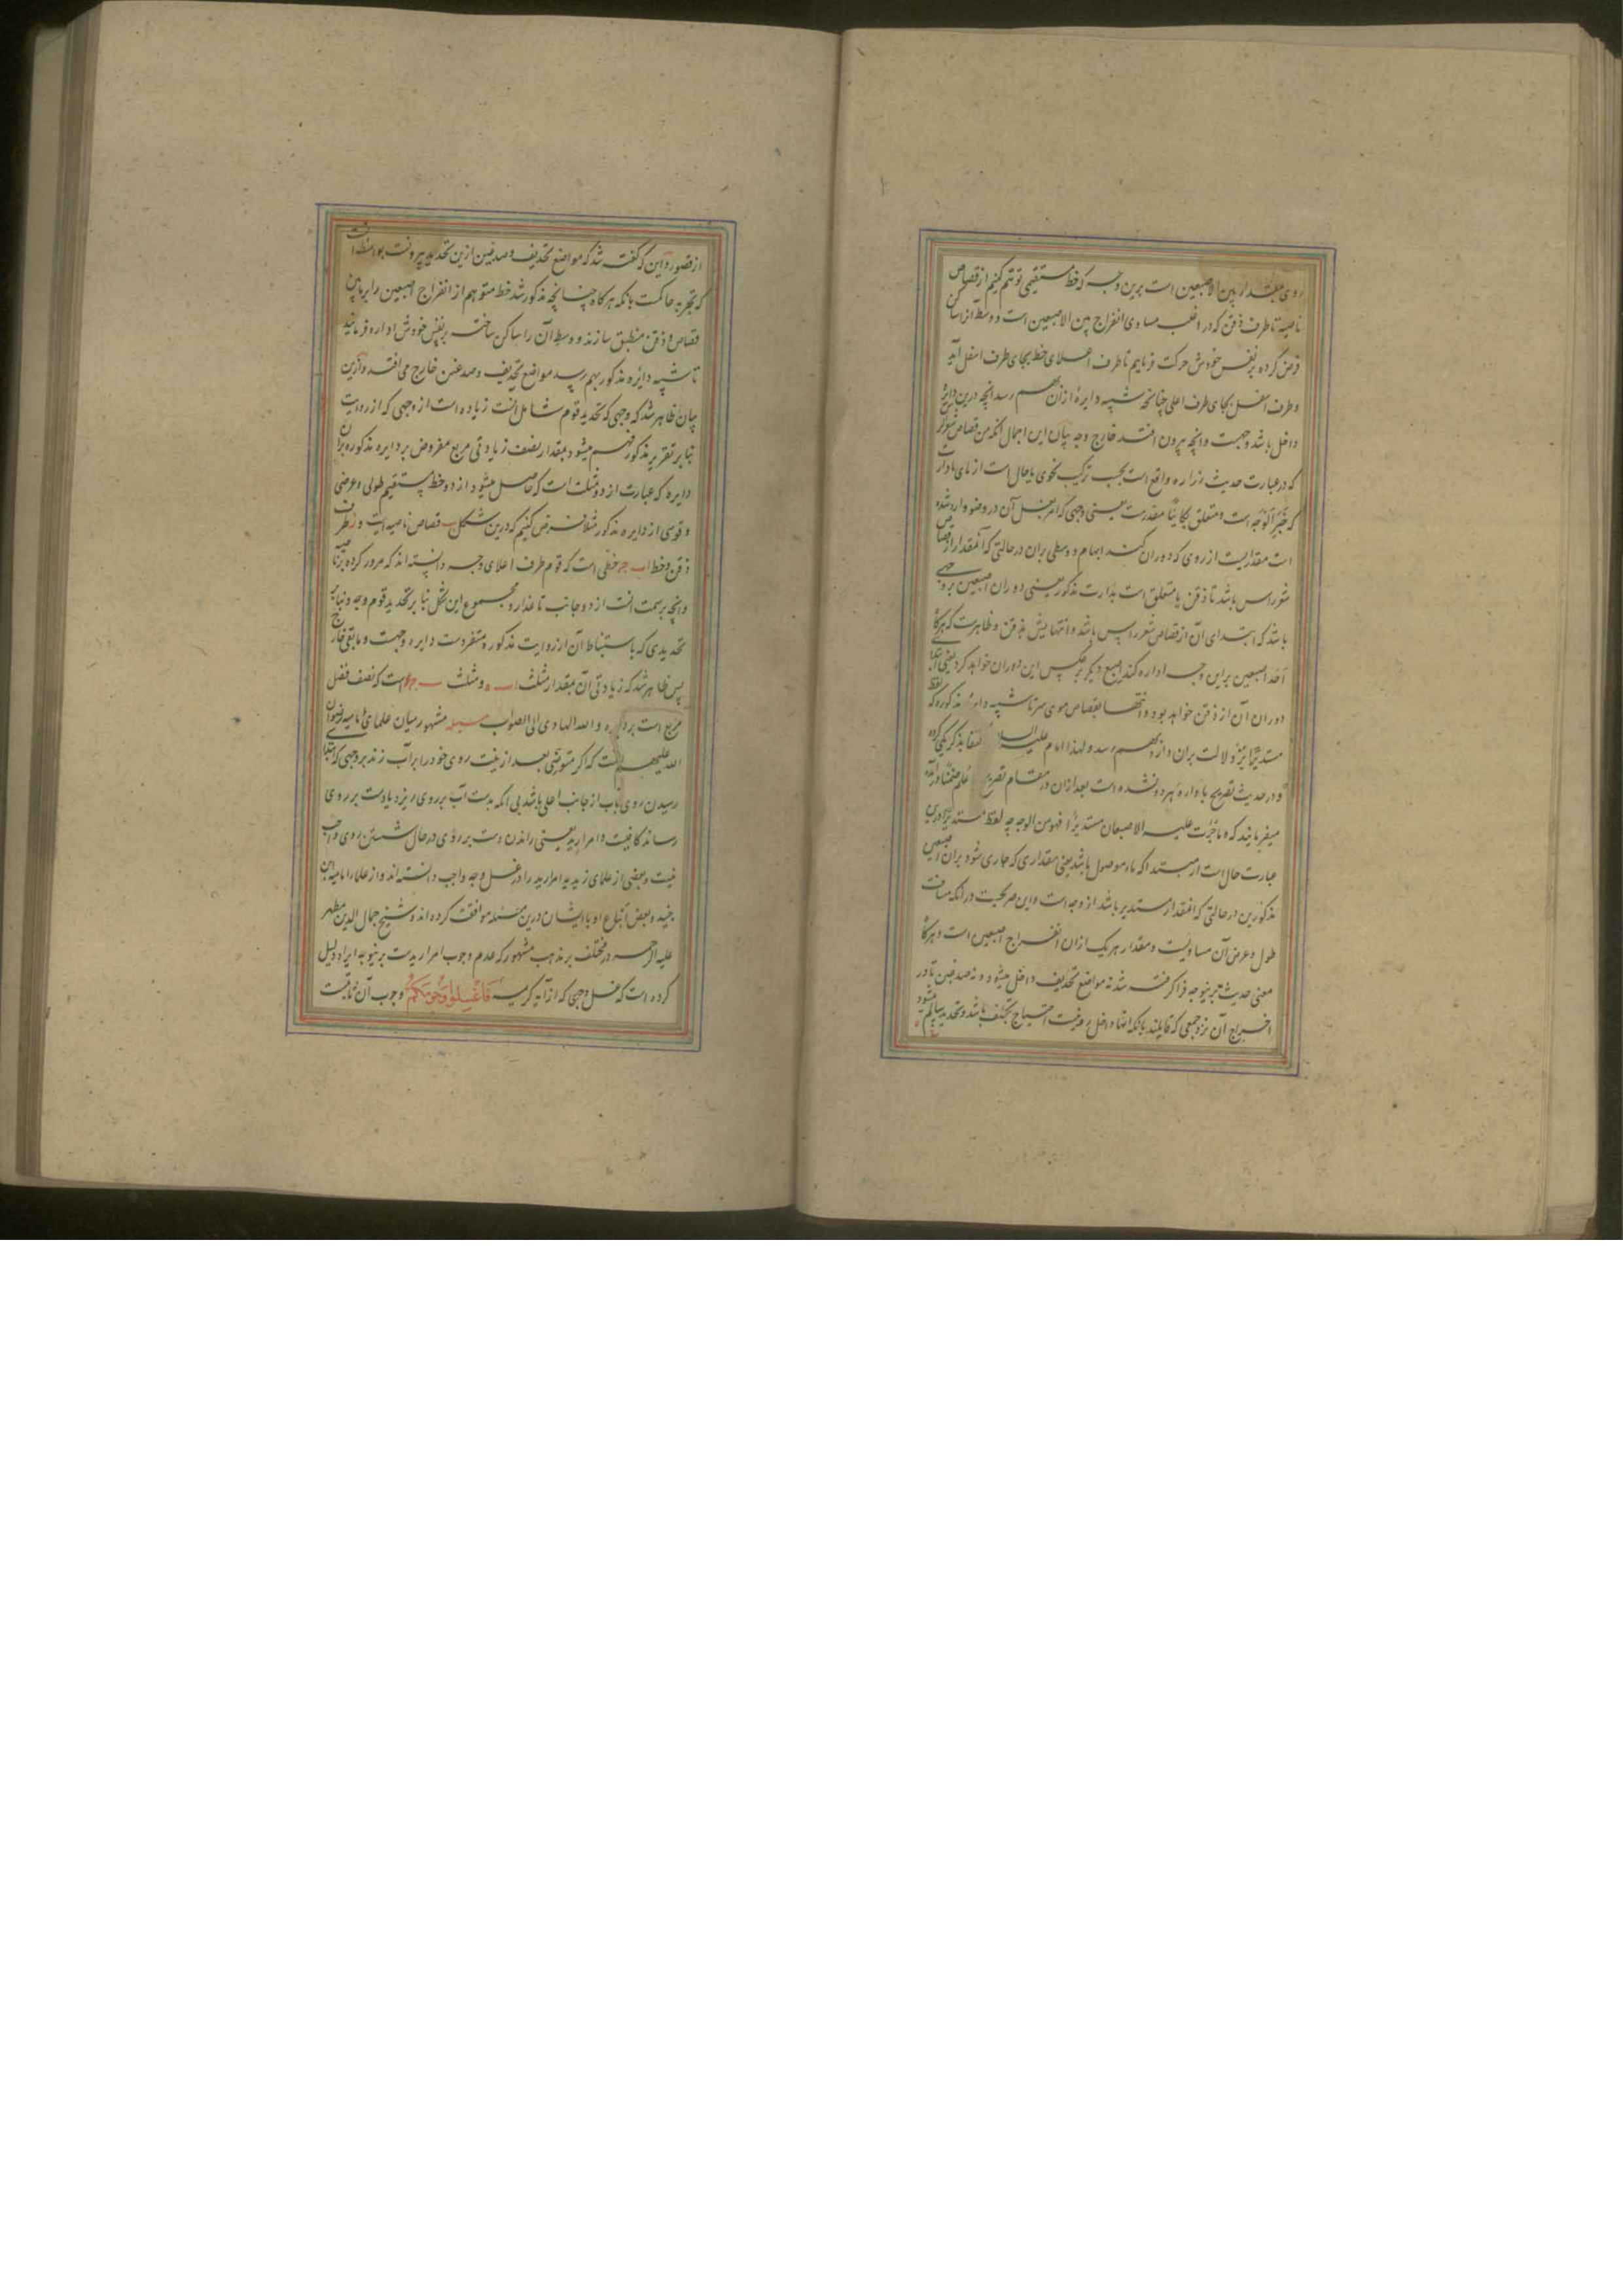 روی بمقدار بین الاصبعین است برین وجه که خط مستقیمی توهم کنیم از قصاص
ناصیه تا طرف ذقن که در اغلب مساوی انفراج بین الاصبعین است و وسط آنرا ساکن
فرض کرده بنفس خودش حرکت فرماییم تا طرف اعلای خط بجای طرف اسفل آید
و طرف اسفل بجای طرف اعلی چنانچه شبیه دایرهٔ ازان بهم رسد انچه درین دایره
داخل باشد وجهست و انچه بیرون افتد خارج وجه بیان این اجمال آنکه من قصاص شعر
که در عبارت حدیث زراره واقع است بحسب ترکیب نحوی یا حال است از مای مادارت
که خبر الوجه است و متعلق بکاینا مقدرست یعنی وجهی که امر بغسل آن در وضو وارد شده
است مقداریست از روی که دوران کند ابهام و وسطی بران در حالتی که آنمقدار از قصاص
شعر راس باشد تا ذقن یا متعلق است بدارت مذکور یعنی دوران اصبعین بر وجهی
باشد که ابتدای آن از قصاص شعر راس باشد و انتهایش بذقن و ظاهرست که هرگاه
احد اصبعین براین وجه اداره کند اصبع دیگر بر عکس این دوران خواهد کرد یعنی ابتدا
دوران آن از ذقن خواهد بود و انتها بقصاص موی سر تا شبیه دایرهٔ مذکوره که لفظ
مستدیرا نیز دلالت بران دارد بهم رسد و لهذا امام علیه السلام اکتفا بذکر یکی کرده
و در حدیث تصریح باداره هر دو نشده است بعد ازان در مقام تصریح
میفرمایند که و ما جرت علیه الاصبعان مستدیرا فهو من الوجه چه لفظ مستدیرا درین
عبارت حال است از مبتدا که ماء موصول باشد یعنی مقداری که جاری شود بران اصبعین
مذکورین در حالتی که آنمقدار مستدیر باشد از وجه است و این صریحست در آنکه مسافت
طول و عرض آن مساویست و مقدار هر یک ازان انفراج اصبعین است و هرگاه
معنی حدیث برینوجه فرا گرفته شد نه مواضع تحذیف داخل میشود و نه صدغین تا در
اخراج آن نزد جمعی که قایلند بآنکه اینها داخل رو نیست احتیاج بتکلف باشد و تحدید سالم میشود
از قصور و این که گفته شد که مواضع تحذیف و صدغین ازین تحدید بیرونست
که تجربه حاکمست بانکه هرگاه چنانچه مذکور شد خط متوهم از انفراج اصبعین را بر مابین
قصاص و ذقن منطبق سازند و وسط آن را ساکن ساخته بر نفس خودش اداره فرمایند
تا شبیه دایره مذکور بهم رسد مواضع تحذیف و صدغین خارج می افتد و ازین
بیان ظاهر شد که وجهی که تحدید قوم شامل آنست زیاده است از وجهی که از روایت
بنابر تقریر مذکور فهم میشود بمقدار نصف زیادتی مربع مفروض بر دایره مذکوره بران
دایره که عبارت از دو مثلث است که حاصل میشود از دو خط مستقیم طولی و عرضی
و قوسی از دایره مذکور مثلا فرض کنیم که درین شکل ب قصاص ناصیه است و ز طرف
ذقن و خط اب ج خطی است که قوم طرف اعلای وجه دانسته اند که مرور کرده بر ناصیه
و انچه بر سمت آنست از دو جانب تا عذار و مجموع این شکل بنابر تحدید قوم وجه و بنابر
تحدیدی که باستنباط آن از روایت مذکوره متفردست دایره وجهست و مابقی خارج
پس ظاهر شد که زیادتی آن بمقدار مثلث اب ه و مثلث است که نصف فضل
مربع است بر دایره و الله الهادی الی الصواب مسئله مشهور میان علمای امامیه رضوان
الله علیهم آنست که اگر متوضی بعد از نیت روی خود را بر آب زند بر وجهی که ابتدا
رسیدن روی بآب از جانب اعلی باشد بی آنکه بدست آب بر روی ریزد یا دست بر روی
رساند کافیست و امرار ید یعنی راندن دست بر روی در حال شستن روی واجب
نیست و بعضی از علمای زیدیه امرار ید را در غسل وجه واجب دانسته اند و از علماء امامیه ابن
جنید و بعض اتباع او با ایشان درین مسئله موافقت کرده اند و شیخ جمال الدین مطهر
علیه الرحمه در مختلف بر مذهب مشهور که عدم وجوب امرار یدست برینوجه ایراد دلیل
کرده است که غسل وجهی که از آیه کریمه فَاغْسِلُوا وُجُوهَكُمْ وجوب آن ثابتست